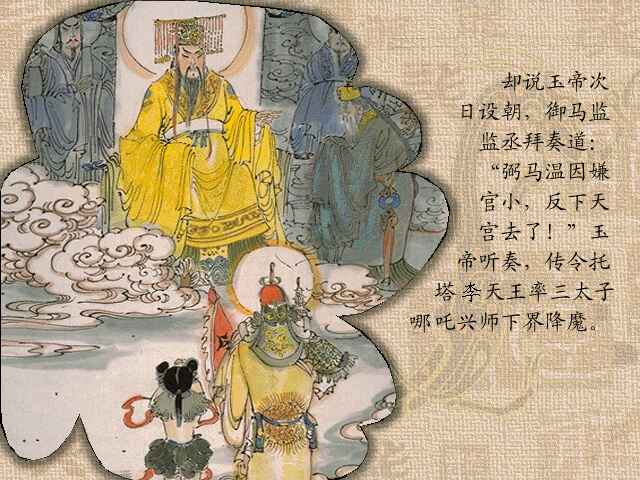 却说玉帝次
日设朝，御马监
监丞拜奏道：
“弼马温因嫌
官小，反下天
宫去了！”玉
帝听奏，传令托
塔李天王率三太子
哪吒兴师下界降魔。